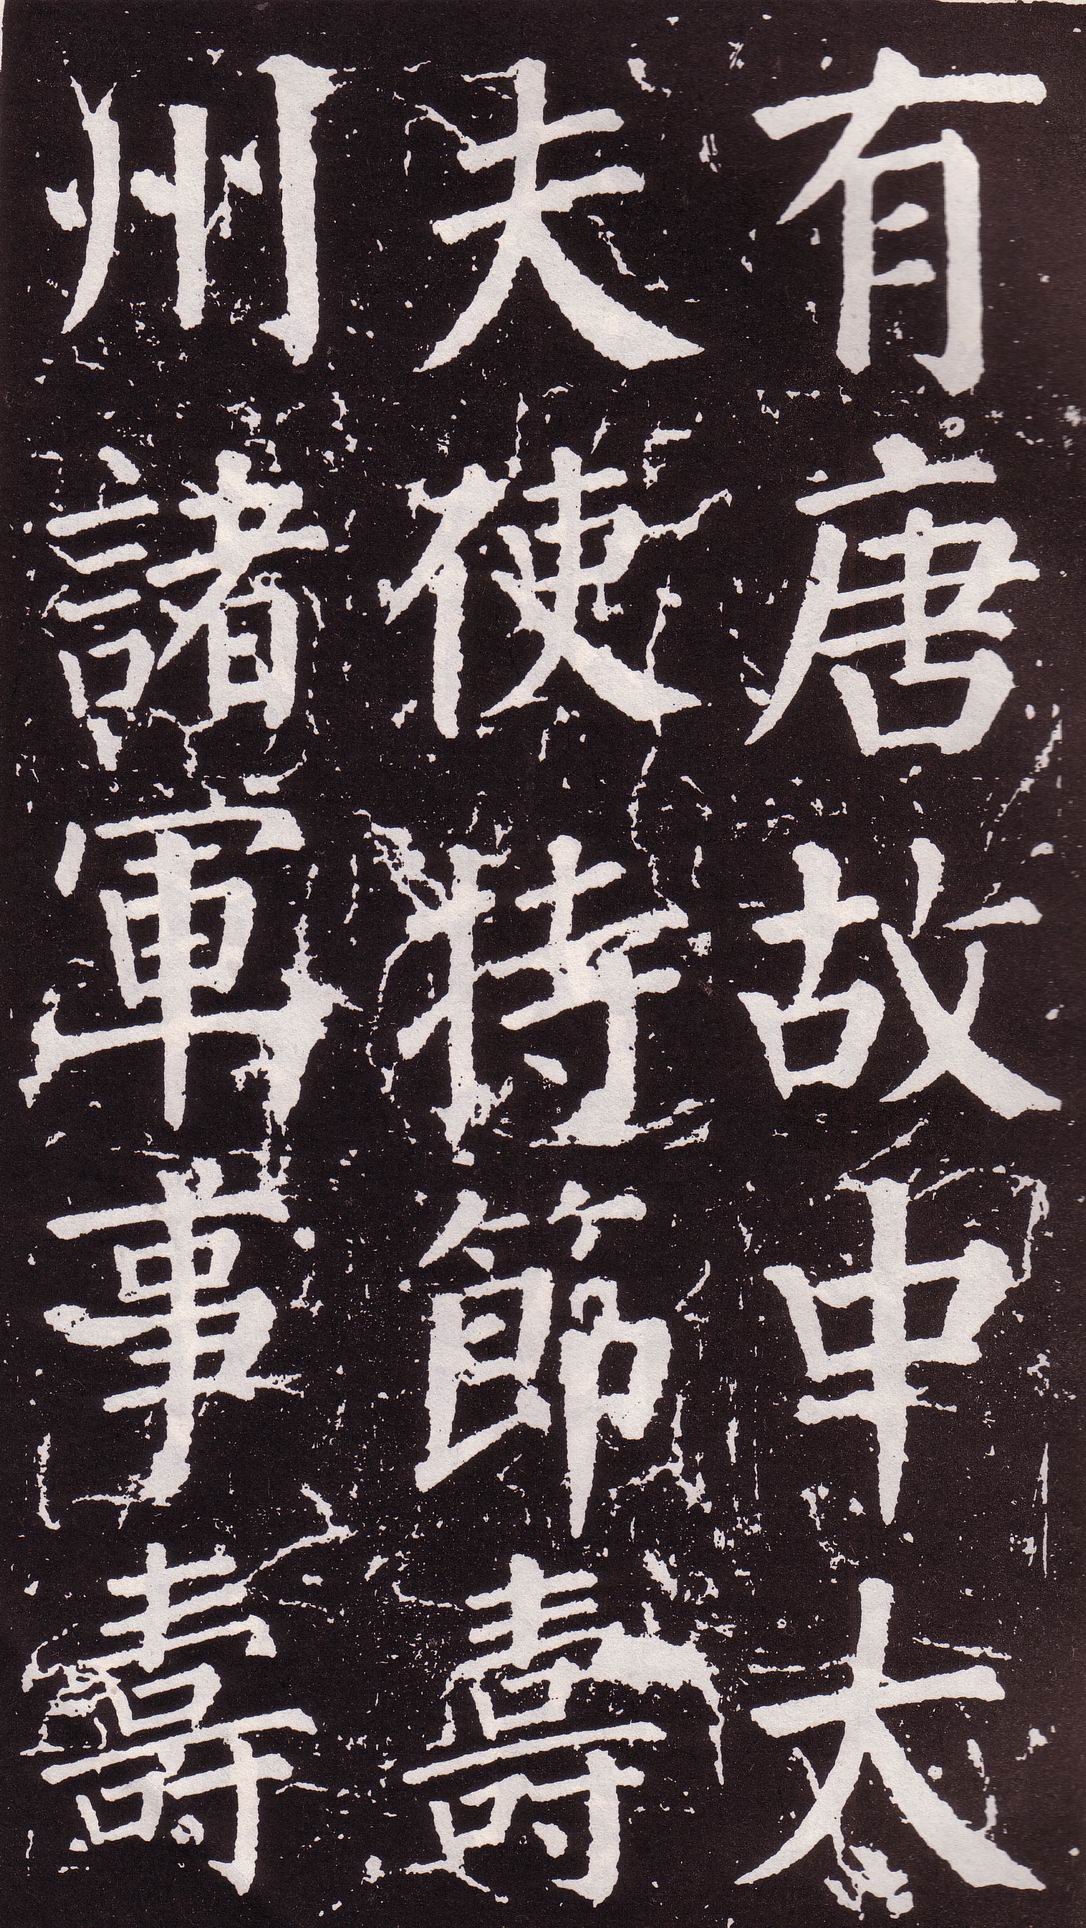 有唐故中大
夫使持節壽
州諸軍事壽